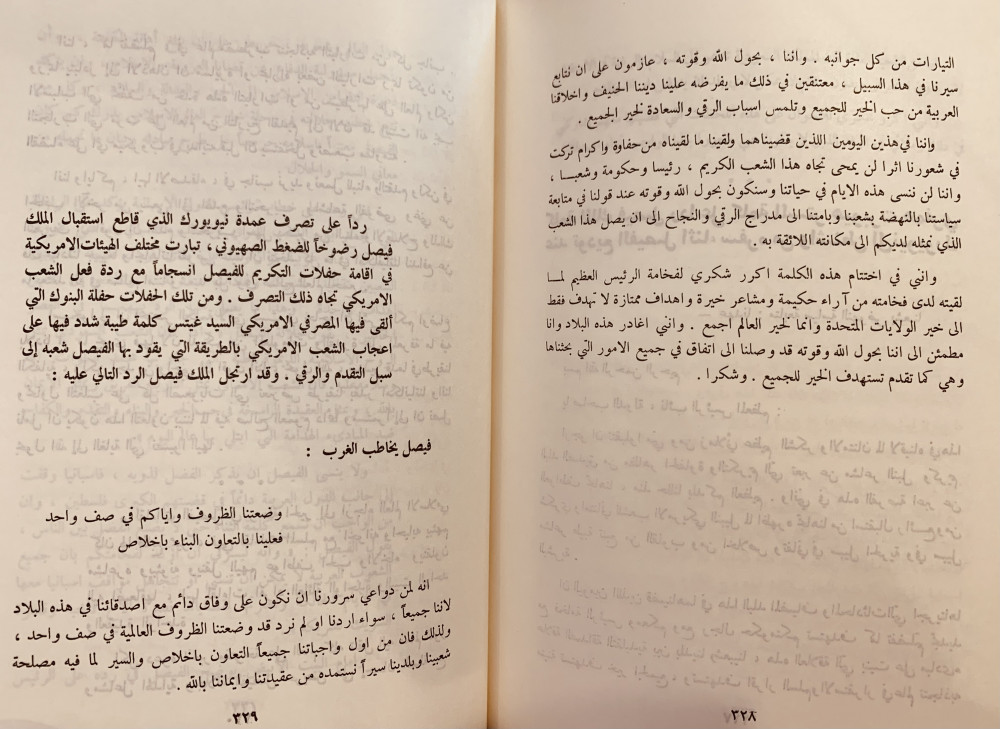 التيارات من كل جوانبه . واننا ، بحول الله وقوته ، عازمون على ان نتابع
سيرنا في هذا السبيل ، معتنقين في ذلك ما يفرضه علينا ديننا الحنيف واخلاقنا
العربية من حب الخير للجميع وتلمس اسباب الرقي والسعادة لخير الجميع .
واننا في هذين اليومين اللذين قضيناهما ولقينا ما لقيناه من حفاوة واكرام تركت
في شعورنا اثرا لن يمحى تجاه هذا الشعب الكريم ، رئيسا وحكومة وشعبـا ،
واننا لن ننسى هذه الايام في حياتنا وسنكون بحول الله وقوته عند قولنا في متابعة
سياستنا بالنهضة بشعبنا وبامتنا الى مدراج الرقي والنجاح الى ان يصل هذا الشعب
الذي نمثله لديكم الى مكانته اللائقة به .
وانني في اختتام هذه الكلمة اكرر شكري لفخامة الرئيس العظيم لمـا
لقيته لدى فخامته من آراء حكيمة ومشاعر خيرة و اهداف ممتازة لا تهدف فقط
الى خير الولايات المتحدة وانما لخير العالم اجمع . وانني اغادر هذه البلاد وانا
مطمئن الى اننا بحول الله وقوته قد وصلنا الى اتفاق في جميع الامور التي بحثناها
وهي كما تقدم تستهدف الخير للجميع . وشكرا .
٣٢٨
رداً على تصرف عمدة نيويورك الذي قاطع استقبال الملك
فيصل رضوخاً للضغط الصهيوني، تبارت مختلف الهيئات الامريكية
في اقامة حفلات التكريم للفيصل انسجاماً مع ردة فعل الشعب
الامريكي تجاه ذلك التصرف . ومن تلك الحفلات حفلة البنوك التي
ألقى فيها المصرفي الامريكي السيد غيتس كلمة طيبة شدد فيها على
اعجاب الشعب الامريكي بالطريقة التي يقود بها الفيصل شعبه إلى
سبل التقدم والرقي . وقد ارتجل الملك فيصل الرد التالي عليه :
فيصل يخاطب الغرب :
وضعتنا الظروف واياكم في صف واحد
فعلينا بالتعاون البناء باخلاص
انه لمن دواعي سرورنا ان نكون على وفاق دائم مع اصدقائنا في هذه البلاد
لاننا جميعاً ، سواء اردنا او لم نرد قد وضعتنا الظروف العالمية في صف واحد ،
ولذلك فان من اول واجباتنا جميعاً التعاون باخلاص والسير لما فيه مصلحة
شعبينا وبلدينا سيراً نستمده من عقيدتنا وايماننا بالله .
٣٢٩